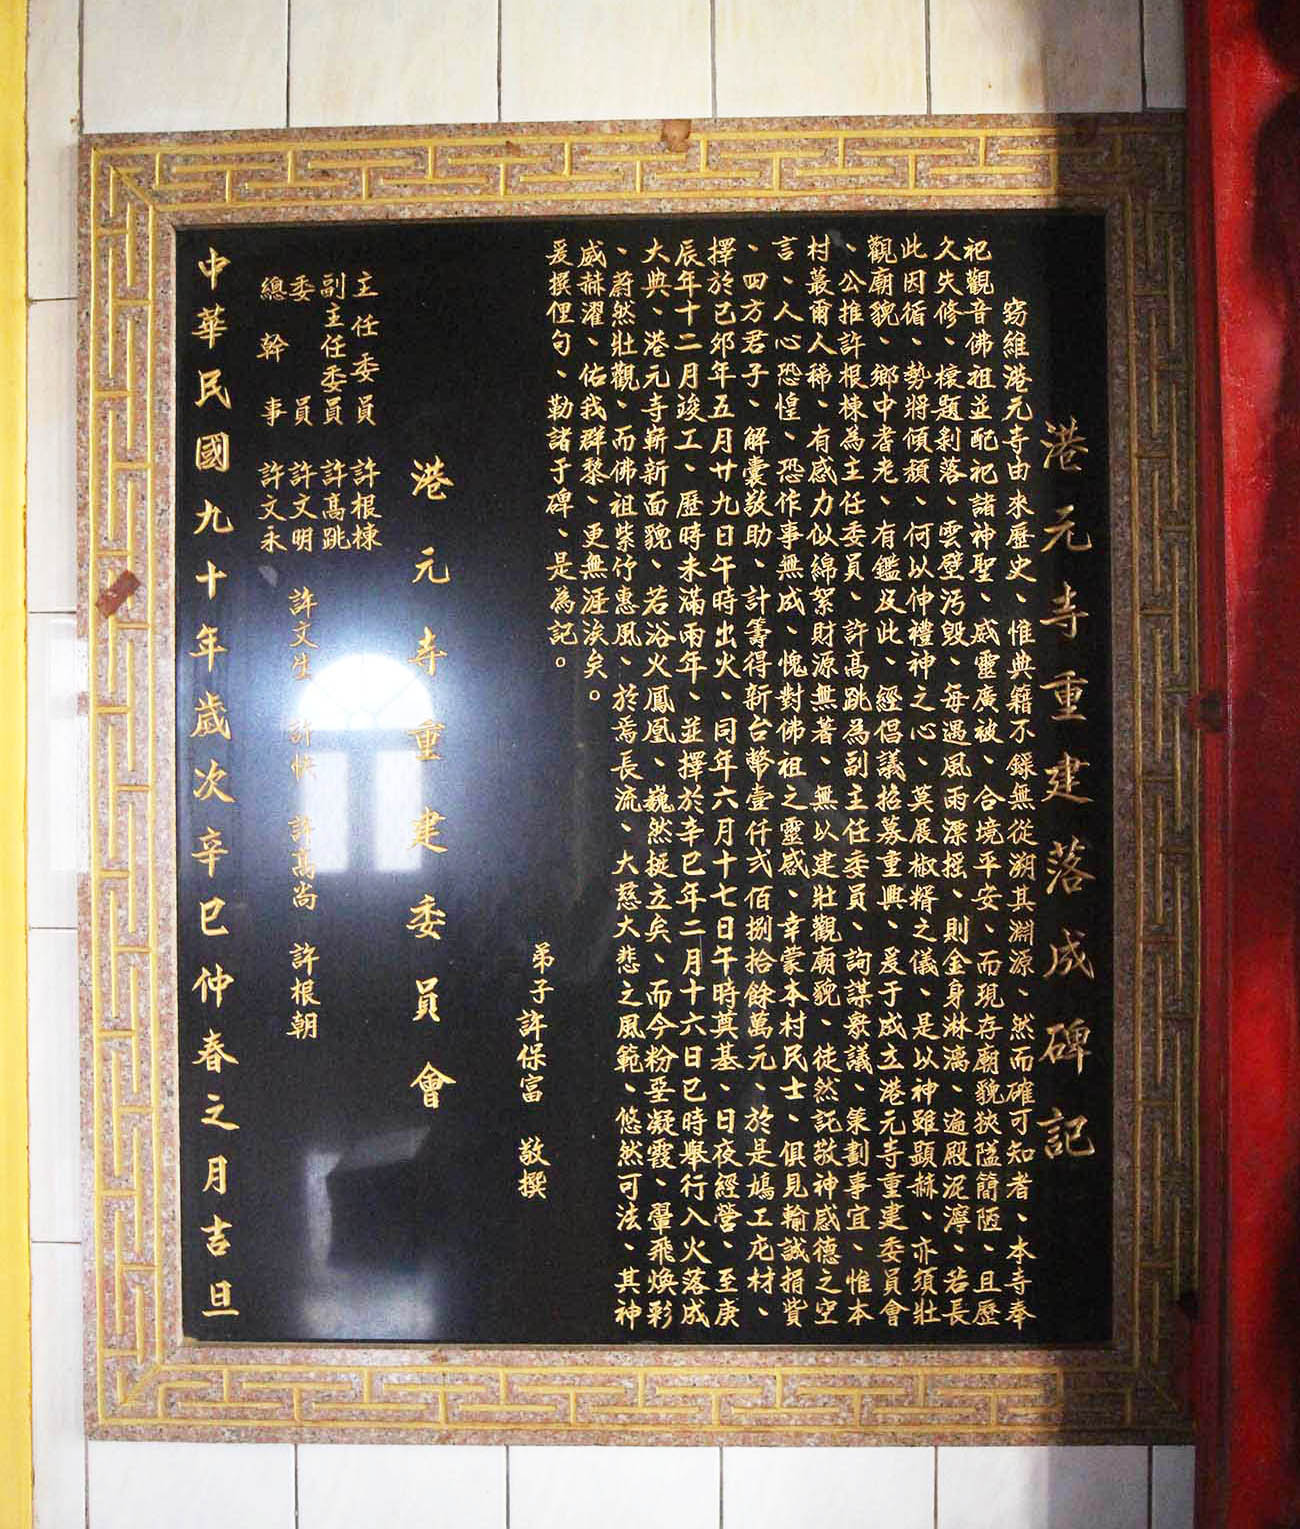 港元寺重建落成碑記
窈維港元寺由來歷史、惟典籍不錄無從溯其淵源、然而確可知者、本寺奉
祀觀音佛祖並配祀諸神聖、威靈廣被、合境平安、而現存廟貌狹隘簡陋、且歷
久失修、榱題剝落、雲壁污毀、每遇風雨漂搖、則金身淋漓、遍殿泥濘、若長
此因循、勢將傾頹、何以伸禮神之心、莫展椒糈之儀、是以神雖顯赫、亦須壯
觀廟貌、鄉中耆老、有鑑及此、經倡議招募重興、爰于成立港元寺重建委員會
、公推許根棟為主任委員、許高跳為副主任委員、詢謀眾議、策劃事宜、惟本
村蕞爾人稀、有感力似綿絮財源無著、無以建壯觀廟貌、徒然託敬神感德之空
言、人心恐惶、恐作事無成、愧對佛祖之靈感、幸蒙本村民士、俱見輸誠捐貲
、四方君子、解囊敬助、計籌得新台幣壹仟弍佰捌拾餘萬元、於是鳩工庀材、
擇於己邜年五月廿九日午時出火、同年六月十七日午時奠基、日夜經營、至庚
辰年十二月竣工、歷時未滿兩年、並擇於辛巳年二月十六日巳時舉行入火落成
大典、港元寺嶄新面貌、若浴火鳳凰、巍然挺立矣、而今粉堊凝霞、翬飛煥彩
、蔚然壯觀、而佛祖紫竹惠風、於焉長流、大慈大悲之風範、悠然可法、其神
威赫濯、佑我群黎、更無涯涘矣。
爰撰俚句、勒諸于碑、是為記。
弟子許保富　敬撰
港元寺重建委員會
主任委員　許根棟
副主任委員　許高跳
委員　許文明　許文生　許快　許萬尚　許根朝
總幹事　許文永
中華民國九十年歲次辛巳仲春之月吉旦